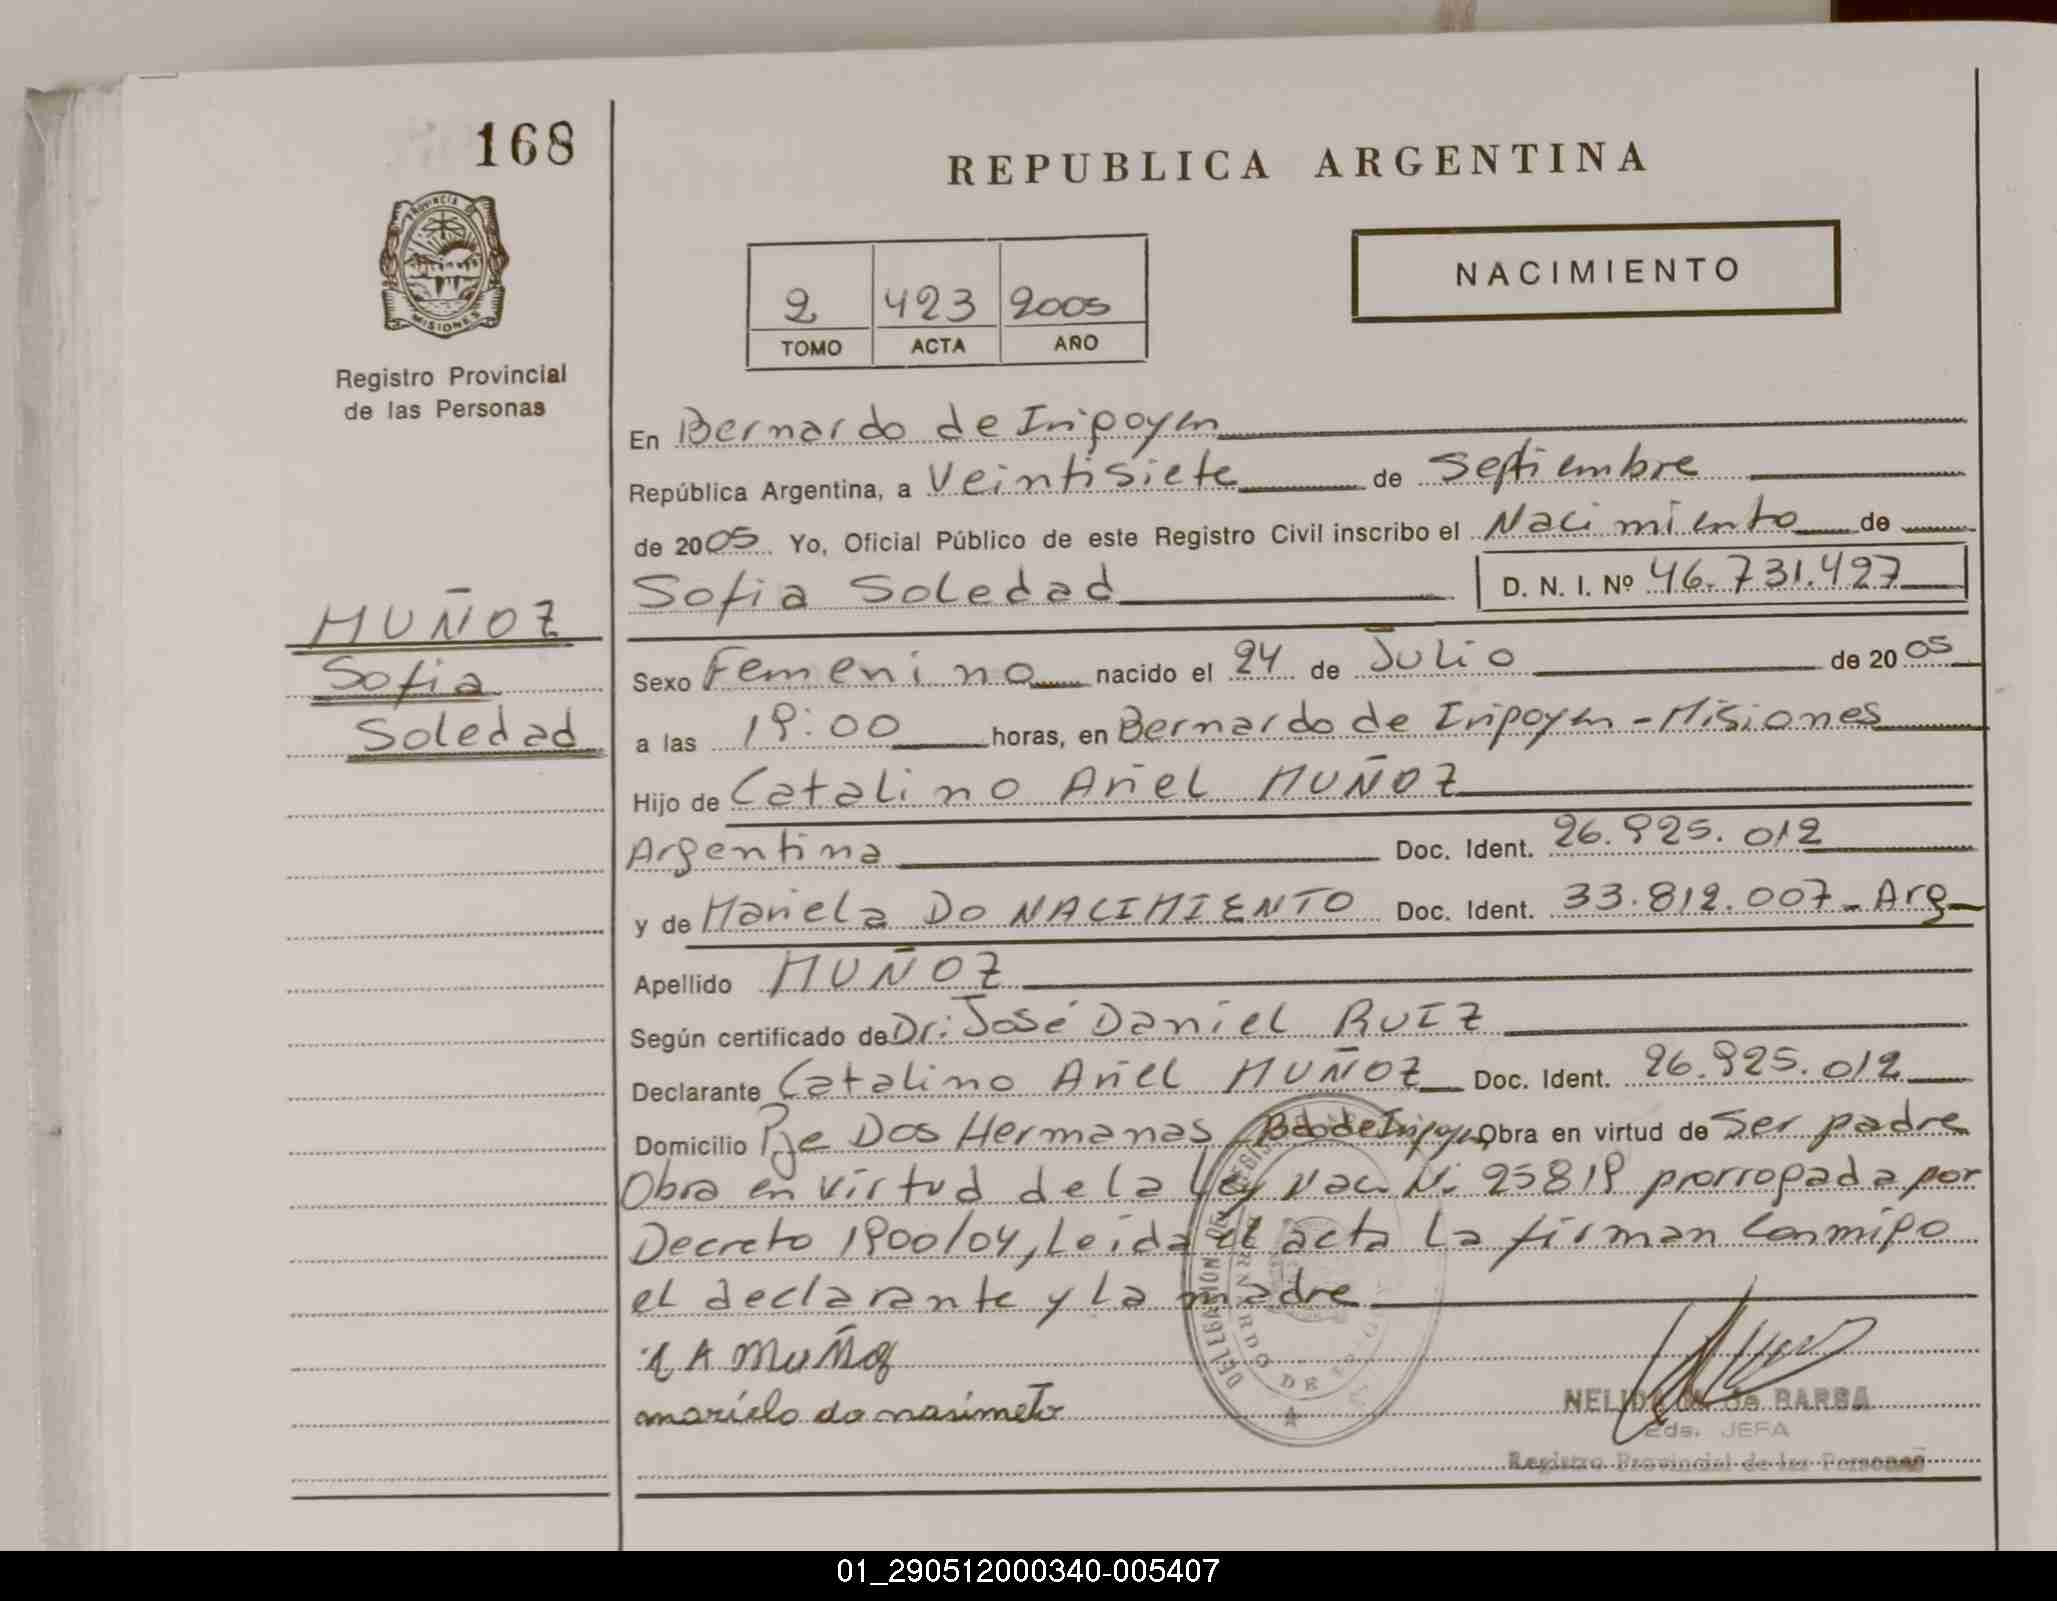 168
REPUBLICA ARGENTINA
PROVINCIA DE
MISIONES
Registro Provincial
de las Personas
NACIMIENTO
2 423 2005
TOMO ACTA AÑO
En Bernardo de Irigoyen
República Argentina, a Veintisiete de Septiembre
de 2005 Yo, Oficial Público de este Registro Civil inscribo el Nacimiento de
Sofia Soledad D. N. I. Nº 46.731.427
MUÑOZ
Sofia
Soledad
Sexo Femenino nacido el 24 de Julio de 2005
a las 19:00 horas, en Bernardo de Irigoyen - Misiones
Hijo de Catalino Ariel MUÑOZ
Argentina Doc. Ident. 26.925.012
y de Mariela DO NACIMIENTO Doc. Ident. 33.812.007 - Arg
Apellido MUÑOZ
Según certificado de Dr: José Daniel RUIZ
Declarante Catalino Ariel MUÑOZ Doc. Ident. 26.925.012
Domicilio Pje Dos Hermanas Bdo de Irigoyen Obra en virtud de Ser padre
Obra en virtud de la Ley Nac. N: 25819 prorrogada por
Decreto 1900/04, Leida el acta la firman conmigo
el declarante y la madre
A MUÑoz
mariela do nasimeto
NELIDA de BARBA
JEFA
Registro Provincial de las Personas
01_290512000340-005407